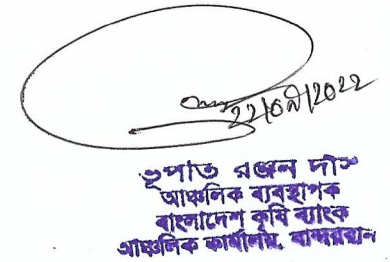 22/০৯/2022
ভূপাত রঞ্জন দাস
আঞ্চলিক ব্যবস্থাপক
বাংলাদেশ কৃষি ব্যাংক
আঞ্চলিক কার্যালয়, বান্দরবান